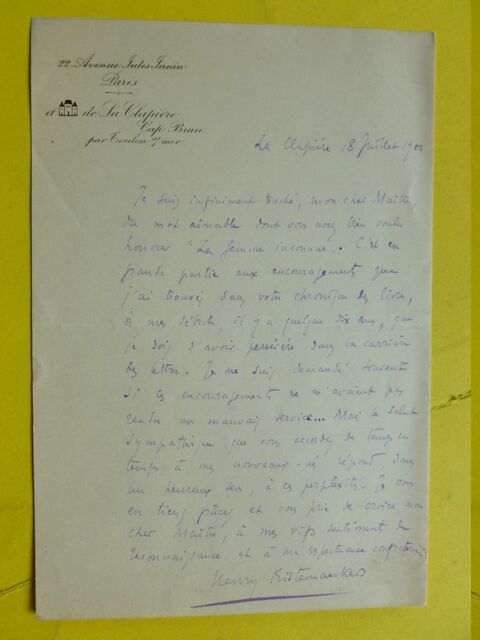 22. Avenue Jules Janin
Paris
et de La Clapière
Cap Brun
par Toulon s/ mer
La Clapière 18 Juillet 1900
Je suis infiniment touché, mon cher Maître,
du mot aimable dont vous avez bien voulu
honorer "La femme inconnue". C'est en
grande partie aux encouragements que
j'ai trouvés dans votre chronique des livres,
à mes débuts, il y a quelque dix ans, que
je dois d'avoir persévéré dans la carrière
des lettres. Je me suis demandé souvent
si ces encouragements ne m'avaient pas
rendu un mauvais service... Mais le salut
sympathique que vous accordez de temps en
temps à mes nouveaux-nés répond, dans
un heureux sens, à ces perplexités. Je vous
en rends grâces et vous prie de croire, mon
cher Maître, à mes vifs sentiments de
reconnaissance et à ma respectueuse confraternité
Henry Kistemaeckers